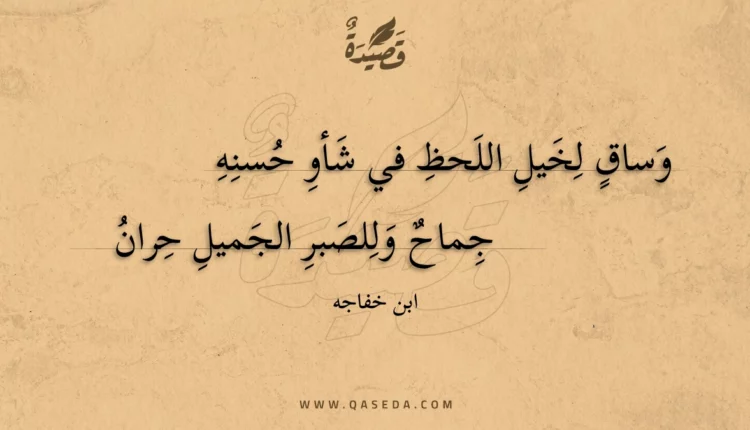 قَصِيدَةٌ
وَساقٍ لِخَيلِ اللَحظِ في شَأوِ حُسنِهِ
جِماحٌ وَلِلصَبرِ الجَميلِ حِرانُ
ابن خفاجه
WWW.QASEDA.COM